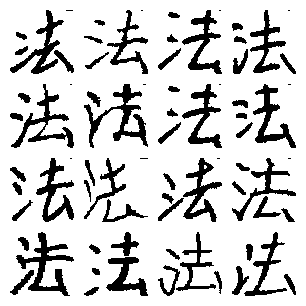 法法法法
法法法法
法法法法
法法法法